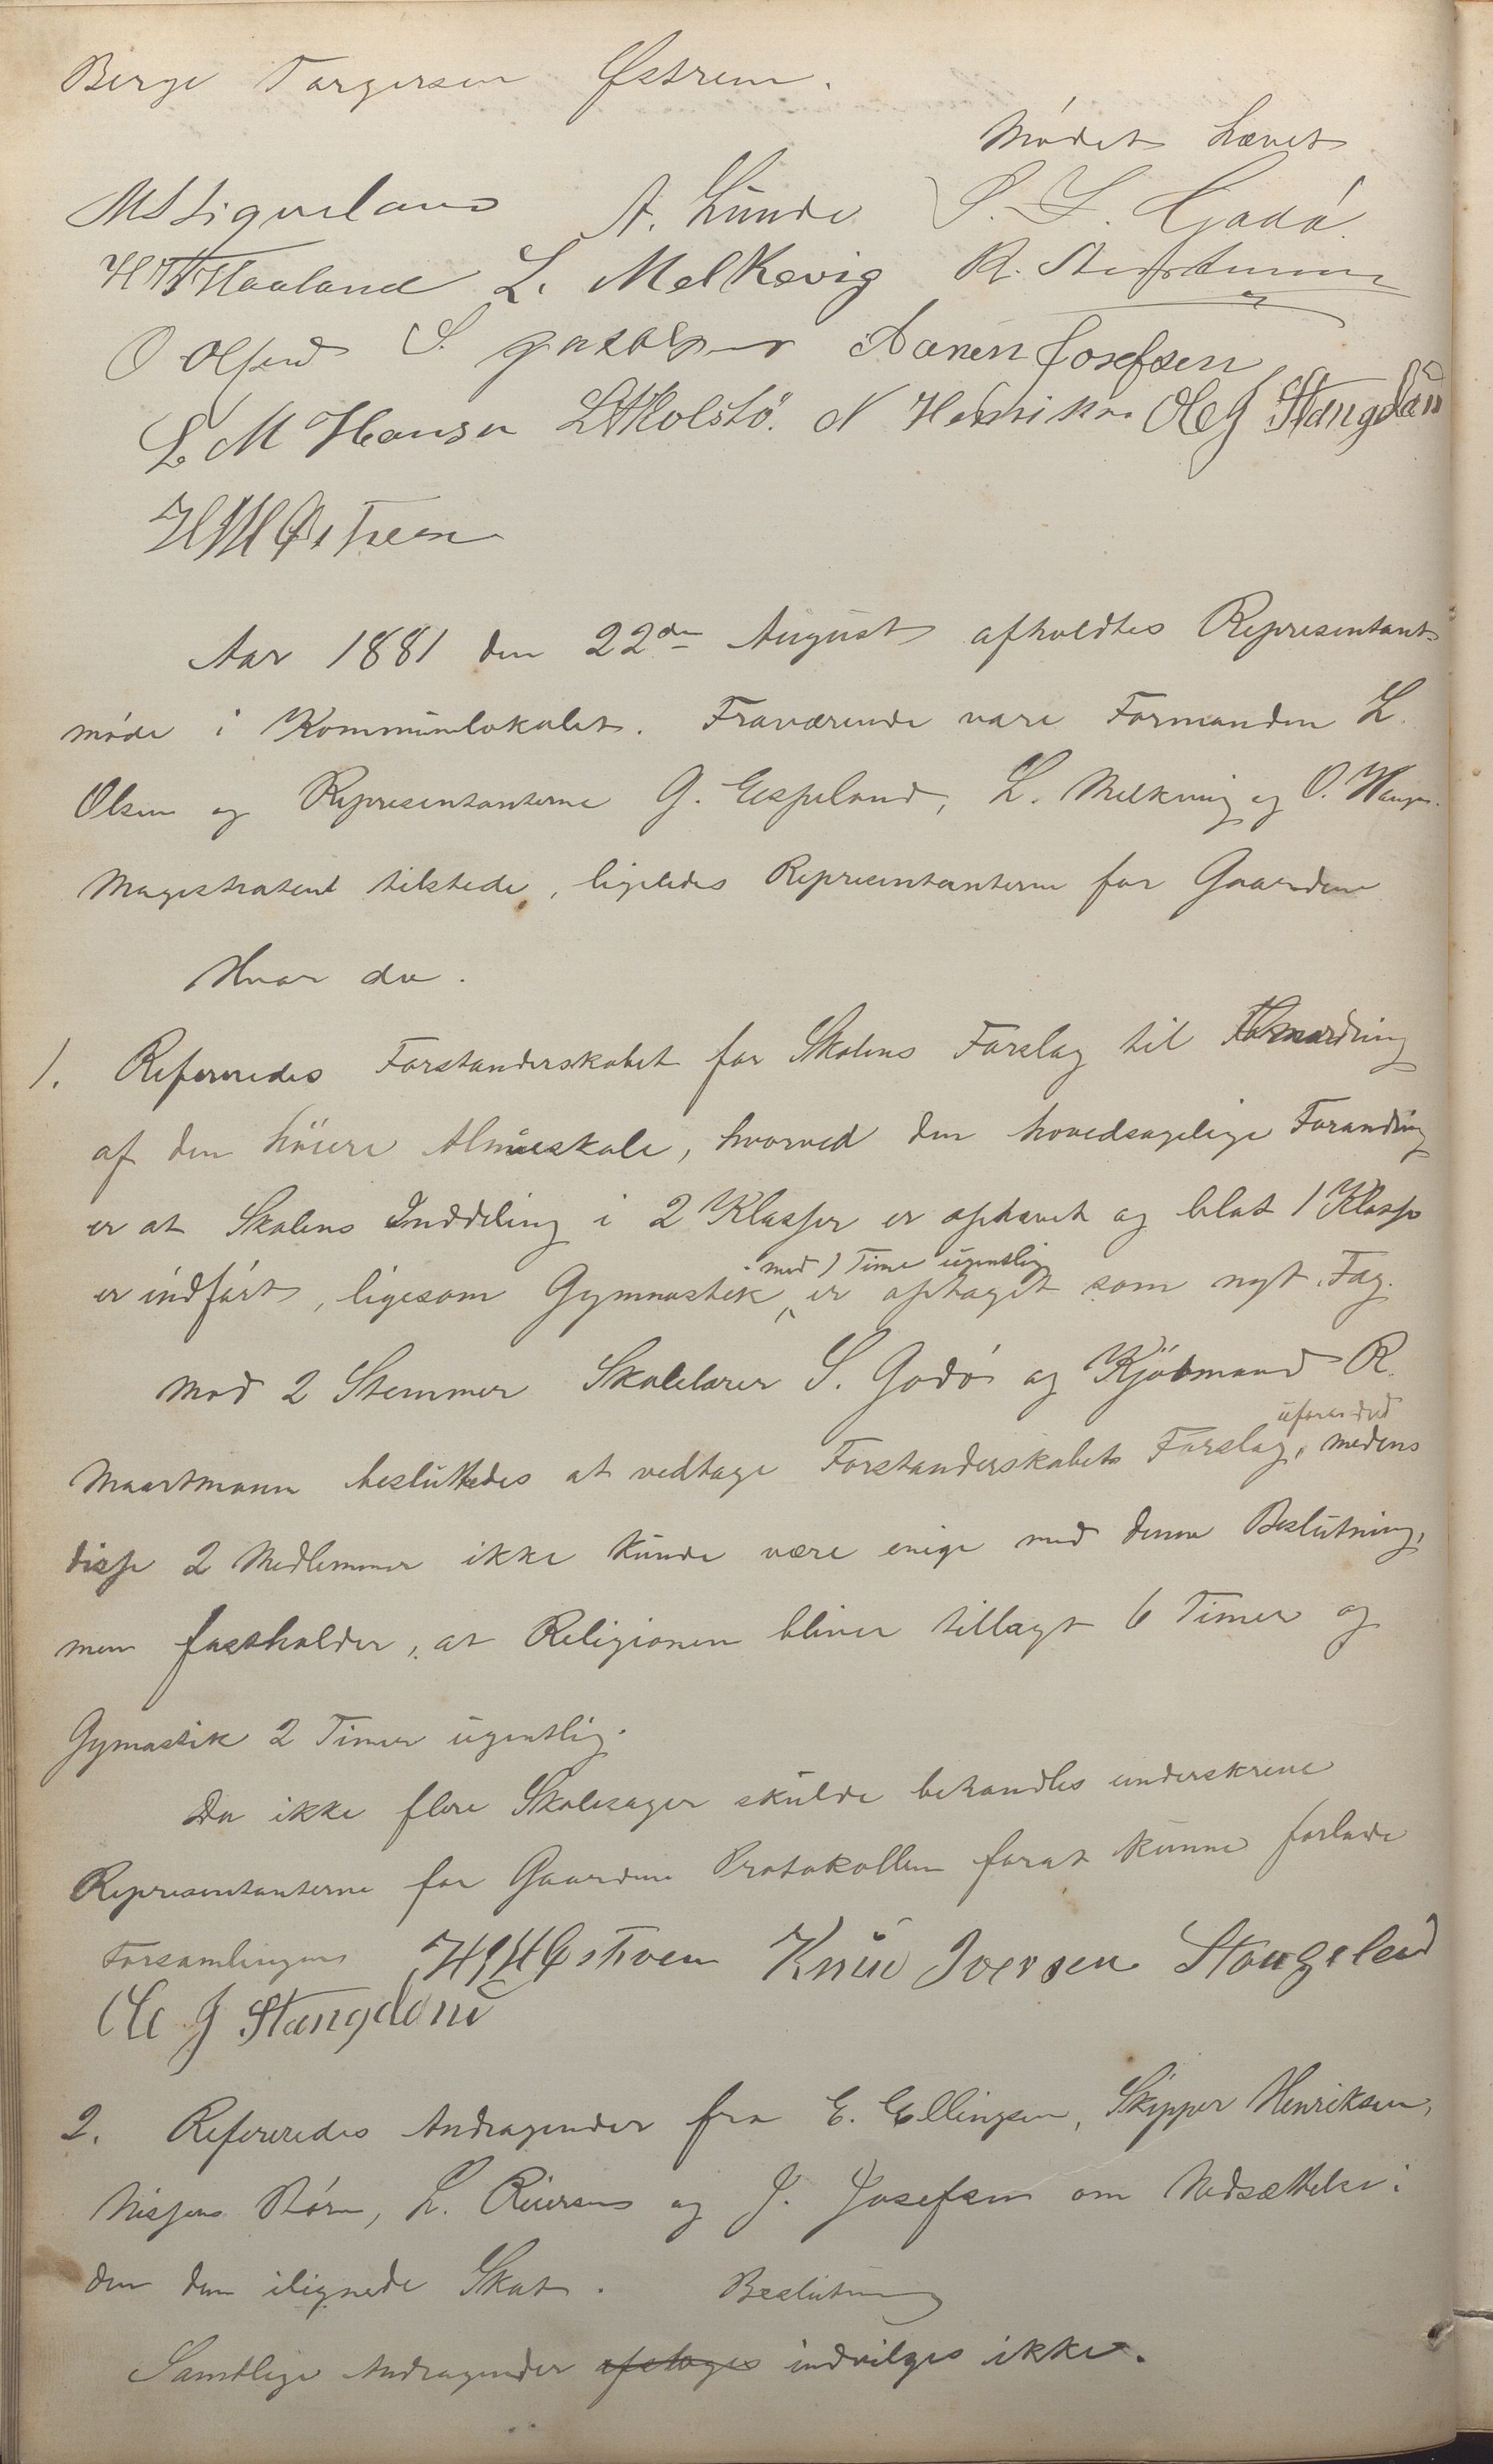 Berge Torgersen Østrem.
Mødet hævet
A. Lunde S. L. Godø
H Haaland L. Melkevig
O Olsen S. Aanen Josefsen
L. M Hansen Holstö. N Henriksen Ole J Stangeland
H M Østrem
Aar 1881 den 22de August afholdtes Representant-
møde i Kommunelokalet. Fraværende vare Formanden L.
Olsen og Representanterne G. Espeland, L. Melkevig og O. Haugen.
Magistraten tilstede, ligeledes Representanterne for Gaardene
Hvor da.
1. Refereredes Forstanderskabet for Skolens Forslag til
af den höiere Almueskole, hvorved den hovedsagelige Forandring
er at Skolens Inddeling i 2 Klasser er ophævet og blot 1 Klasse
er indført, ligesom Gymnastik med 1 Time ugentlig er optaget som nyt Fag.
Mod 2 Stemmer Skolelærer S. Godø og Kjöbmand R.
Maartmann besluttedes at vedtage Forstanderskabets Forslag uforandred, medens
disse 2 Medlemmer ikke kunde være enige med denne Beslutning,
men fastholder, at Religionen bliver tillagt 6 Timer og
Gymastik 2 Timer ugentlig.
Da ikke flere Skolesager skulde behandles underskreve
Representanterne for Gaardene Protokollen forat kunne forlade
Forsamlingen H M Østrem Knud Iversen Stangeland
Ole J Stangeland
2. Refereredes Andragender fra E. Ellingsen, Skipper Henriksen,
Nissens Børn, L. og J. Josefsen om Nedsættelse i
den dem ilignede Skat. Beslutning
Samtlige Andragender afslages indvilges ikke.